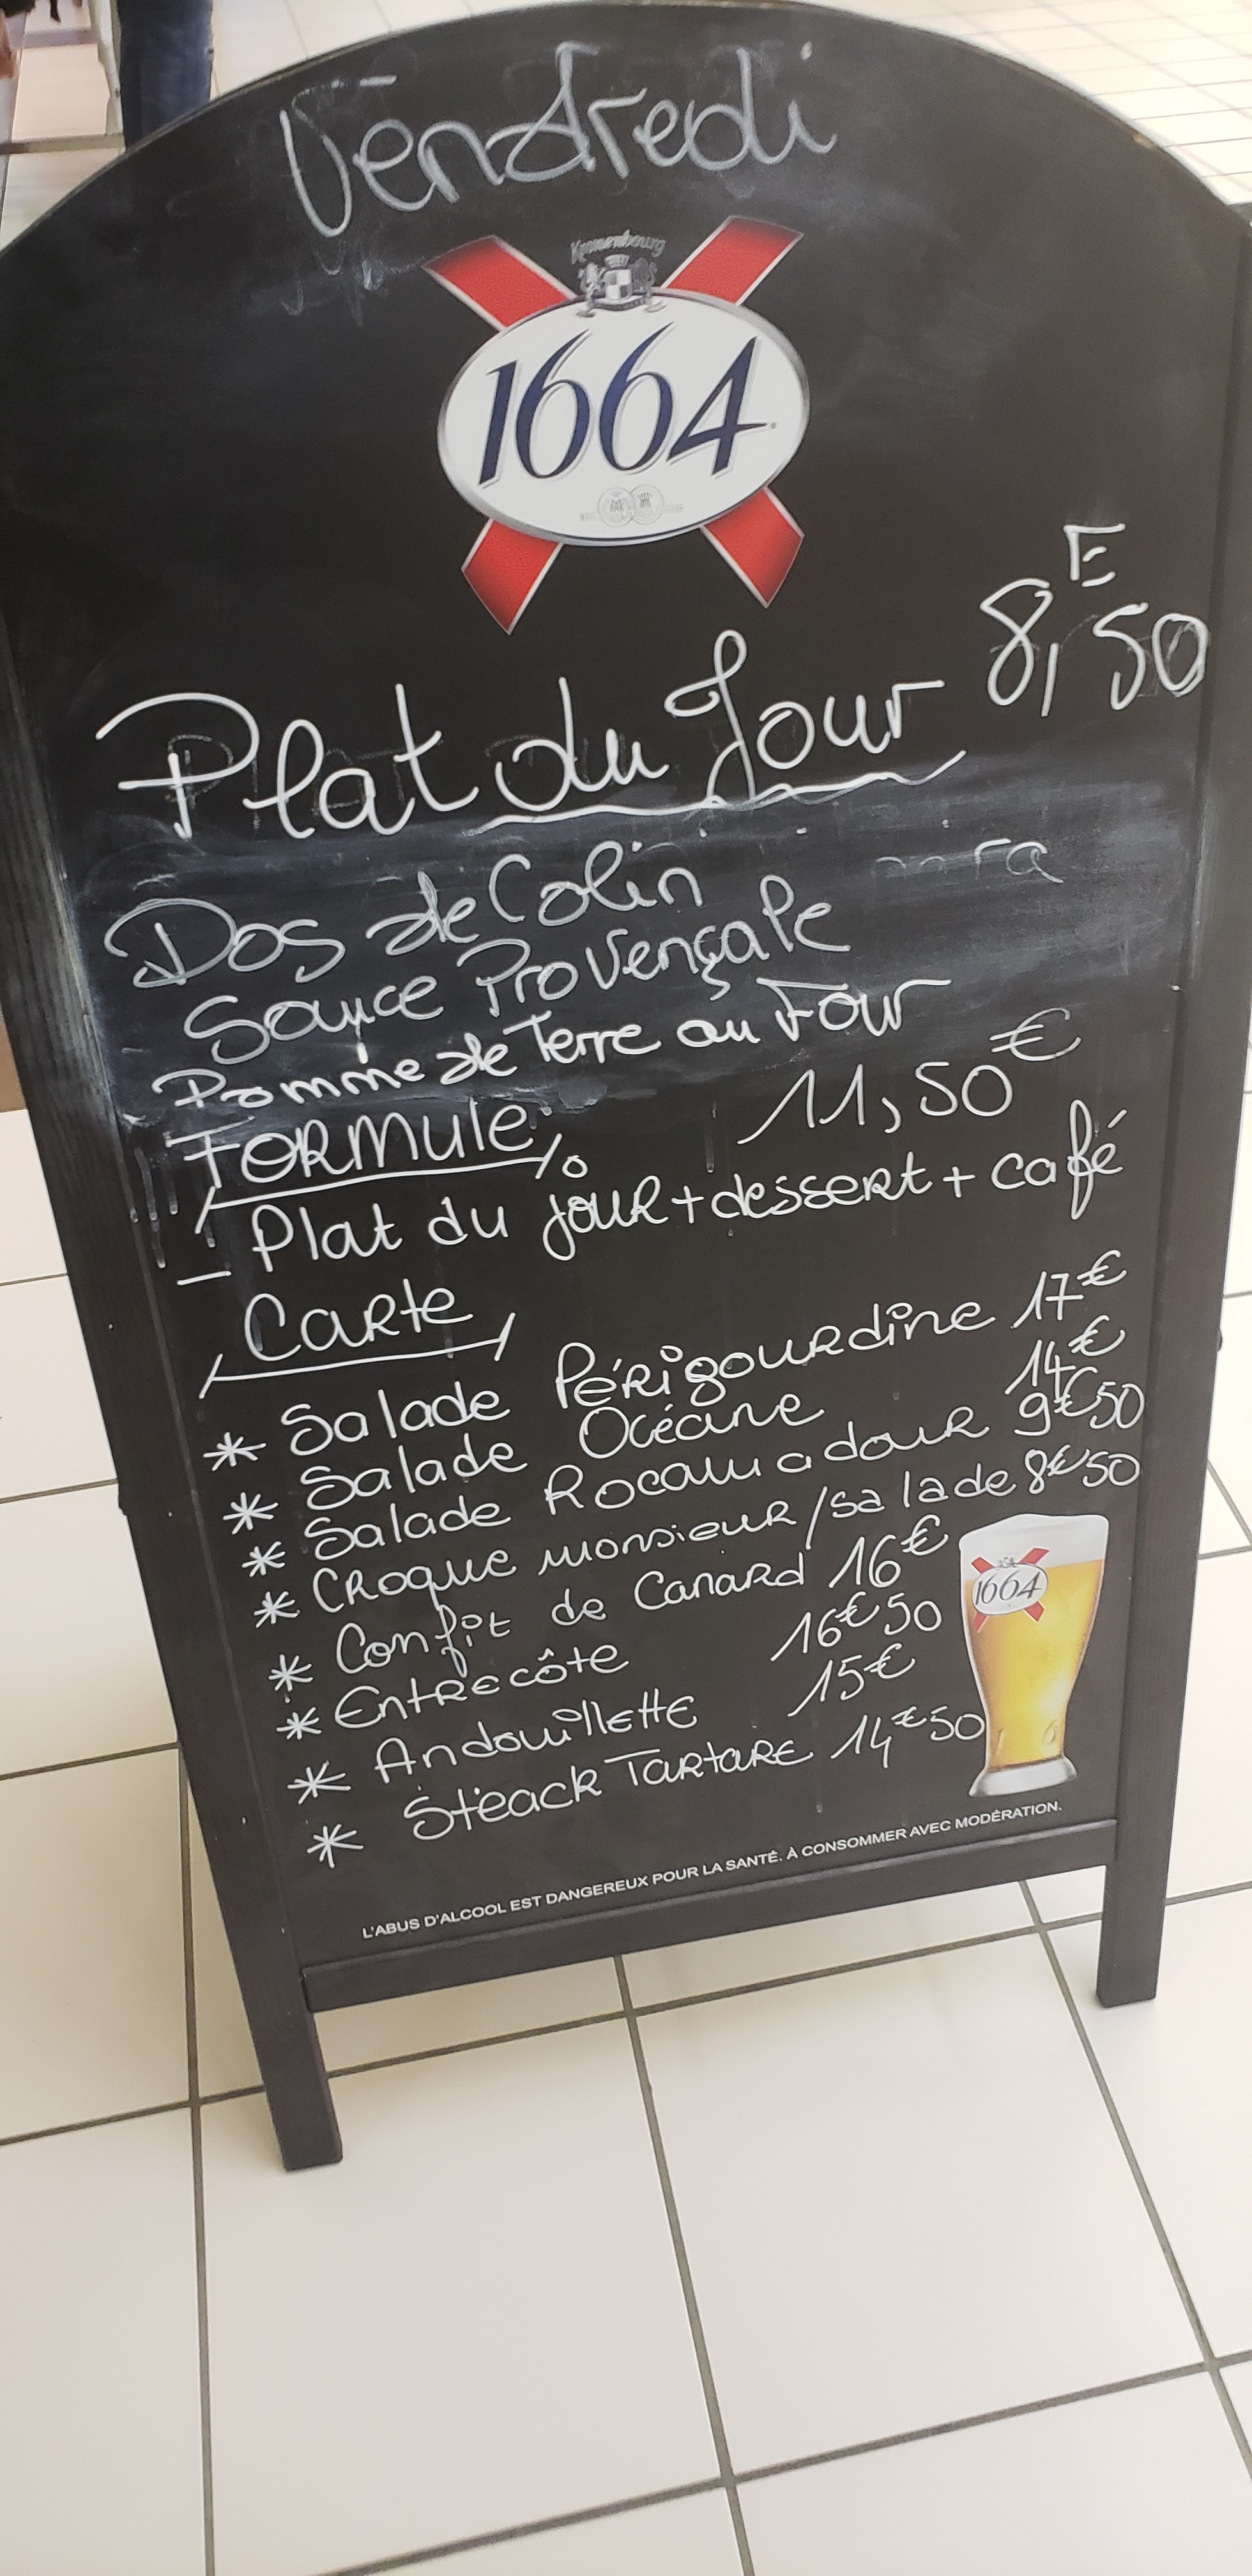 Vendredi
Kronenbourg
1664
Plat du Jour 8,50 E
Dos de Colin
Sauce Provençale
Pomme de Terre au Four
FORMule: 11,50 €
- Plat du jouR + dessERt + café
CaRte
* Salade PéRigouRdine 17€
* Salade Océane 14€
* Salade Rocamadour 9€50
* CRoque monsieuR/salade 8€50
* Confit de CanaRd 16€
* EntRecôte 16€50
* AndouillEttE 15€
* Steack TaRtaRE 14€50
1664
L'ABUS D'ALCOOL EST DANGEREUX POUR LA SANTÉ. À CONSOMMER AVEC MODÉRATION.